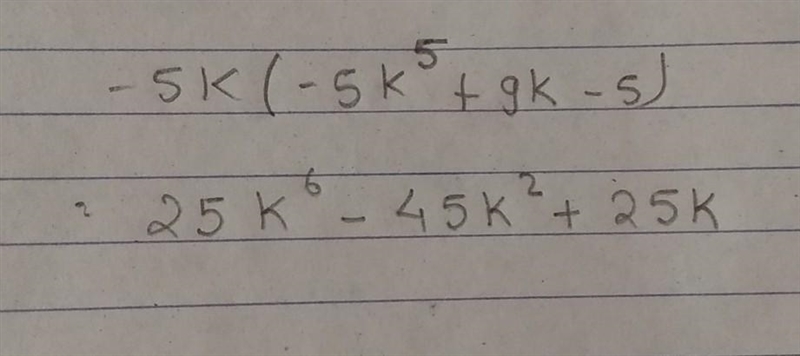 -5K(-5K⁵+9K-5)
= 25K⁶-45K²+25K